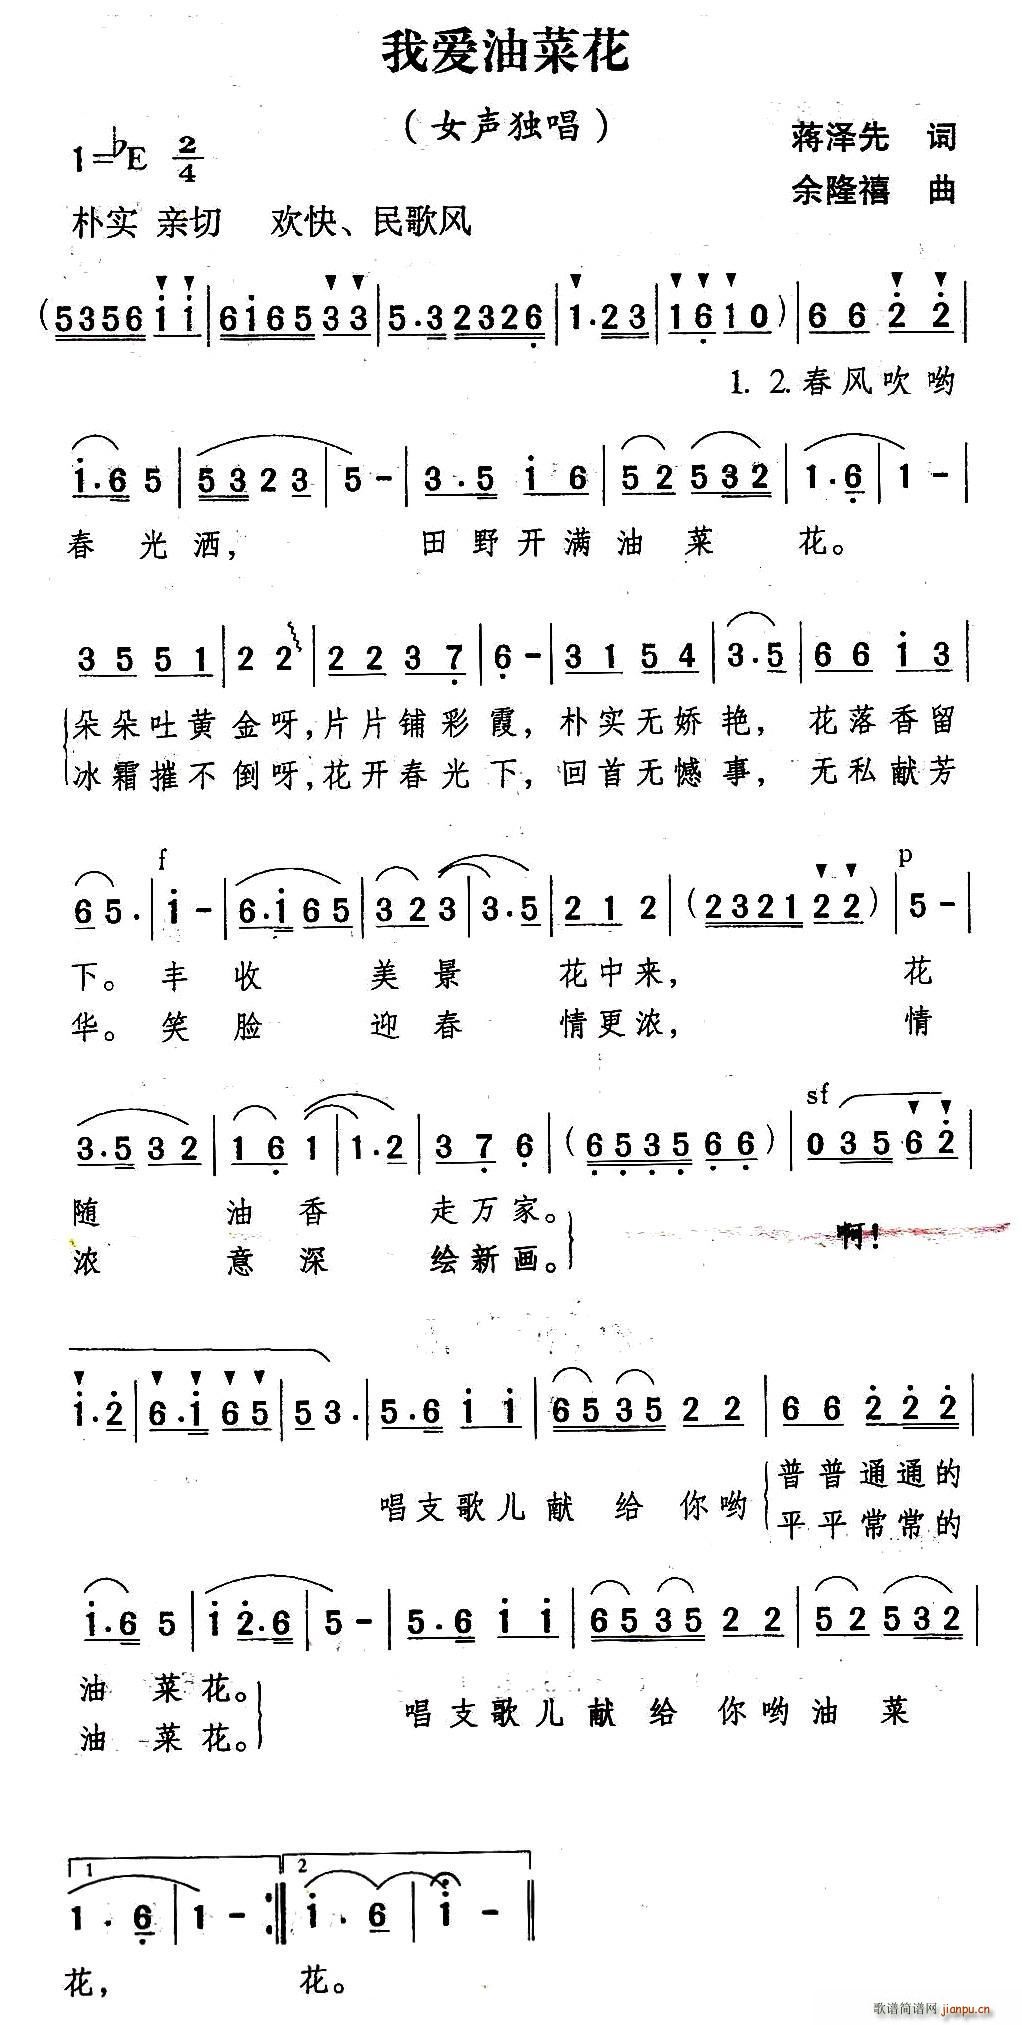 我爱油菜花
(女声独唱)
1=♭E 2/4
蒋泽先 词
余隆禧 曲
朴实 亲切 欢快、民歌风
(5356 i i | 6i65 3 3 | 5.3 2326 | 1.23 | 1 6 1 0) | 6 6 2 2 |
1. 2. 春风吹哟
i.6 5 | 53 2 3 | 5 - | 3.5 i 6 | 52 532 | 1.6 | 1 - |
春光洒, 田野开满油菜花。
3 5 5 1 | 2 2 | 2 2 3 7 | 6 - | 3 1 5 4 | 3.5 | 6 6 i 3 |
朵朵吐黄金呀,片片铺彩霞, 朴实无娇艳, 花落香留
冰霜摧不倒呀,花开春光下, 回首无憾事, 无私献芳
f p
6 5. | i - | 6.i 6 5 | 3 2 3 | 3.5 | 2 1 2 | (2321 2 2) | 5 - |
下。丰收美景花中来, 花
华。笑脸迎春情更浓, 情
sf
3.5 3 2 | 1 6 1 | 1.2 | 3 7 6 | (6535 6 6) | 0 3 5 6 2 |
随油香走万家。 啊!
浓意深绘新画。
i.2 | 6.i 6 5 | 5 3. | 5.6 i i | 6535 2 2 | 6 6 2 2 2 |
唱支歌儿献给你哟
普普通通的
平平常常的
i.6 5 | i 2.6 | 5 - | 5.6 i i | 6535 2 2 | 52 532 |
油菜花。
油菜花。
唱支歌儿献给你哟油菜
1 2
1.6 | 1 - :‖ i.6 | i - ‖
花, 花。
歌谱简谱网 jianpu.cn